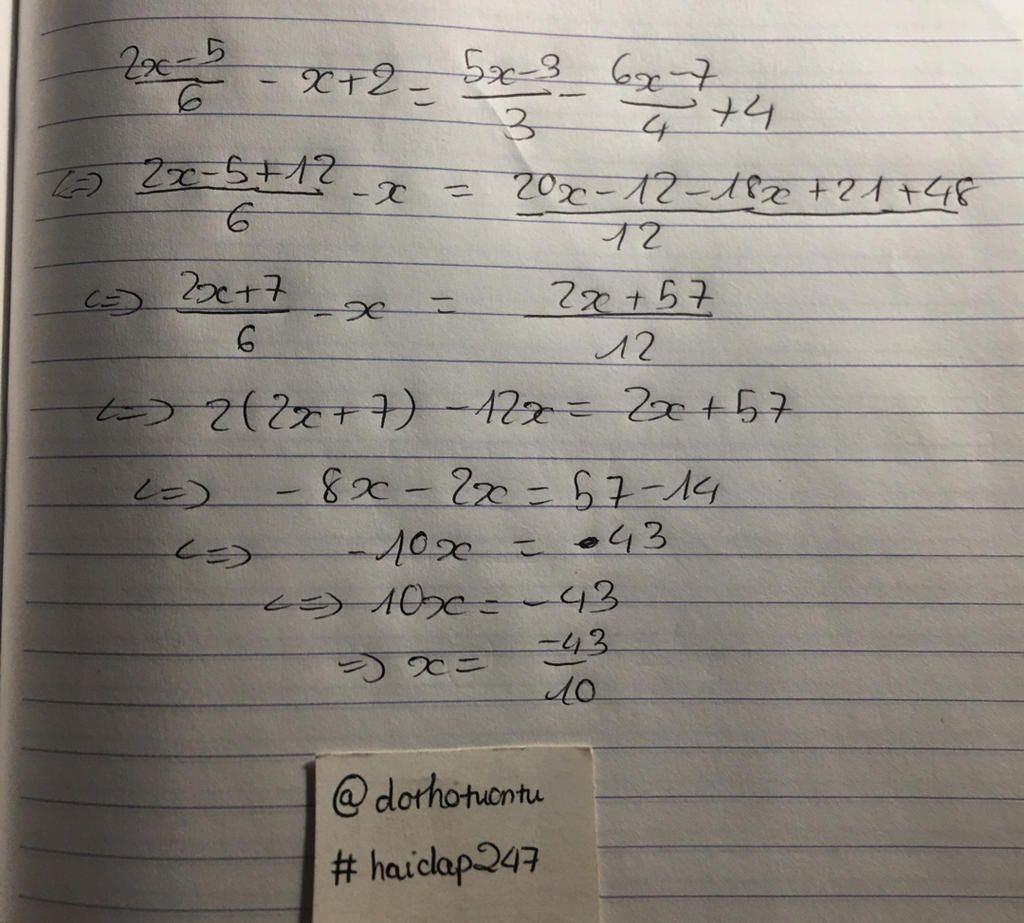 (2x-5)/6 - x+2 = (5x-3)/3 - (6x-7)/4 +4
<=> (2x-5+12)/6 - x = (20x-12-18x+21+48)/12
<=> (2x+7)/6 - x = (2x+57)/12
<=> 2(2x+7) -12x = 2x+57
<=> -8x - 2x = 57-14
<=> -10x = 43
<=> 10x = -43
=> x = -43/10
@dothotuontu
# haiclap247